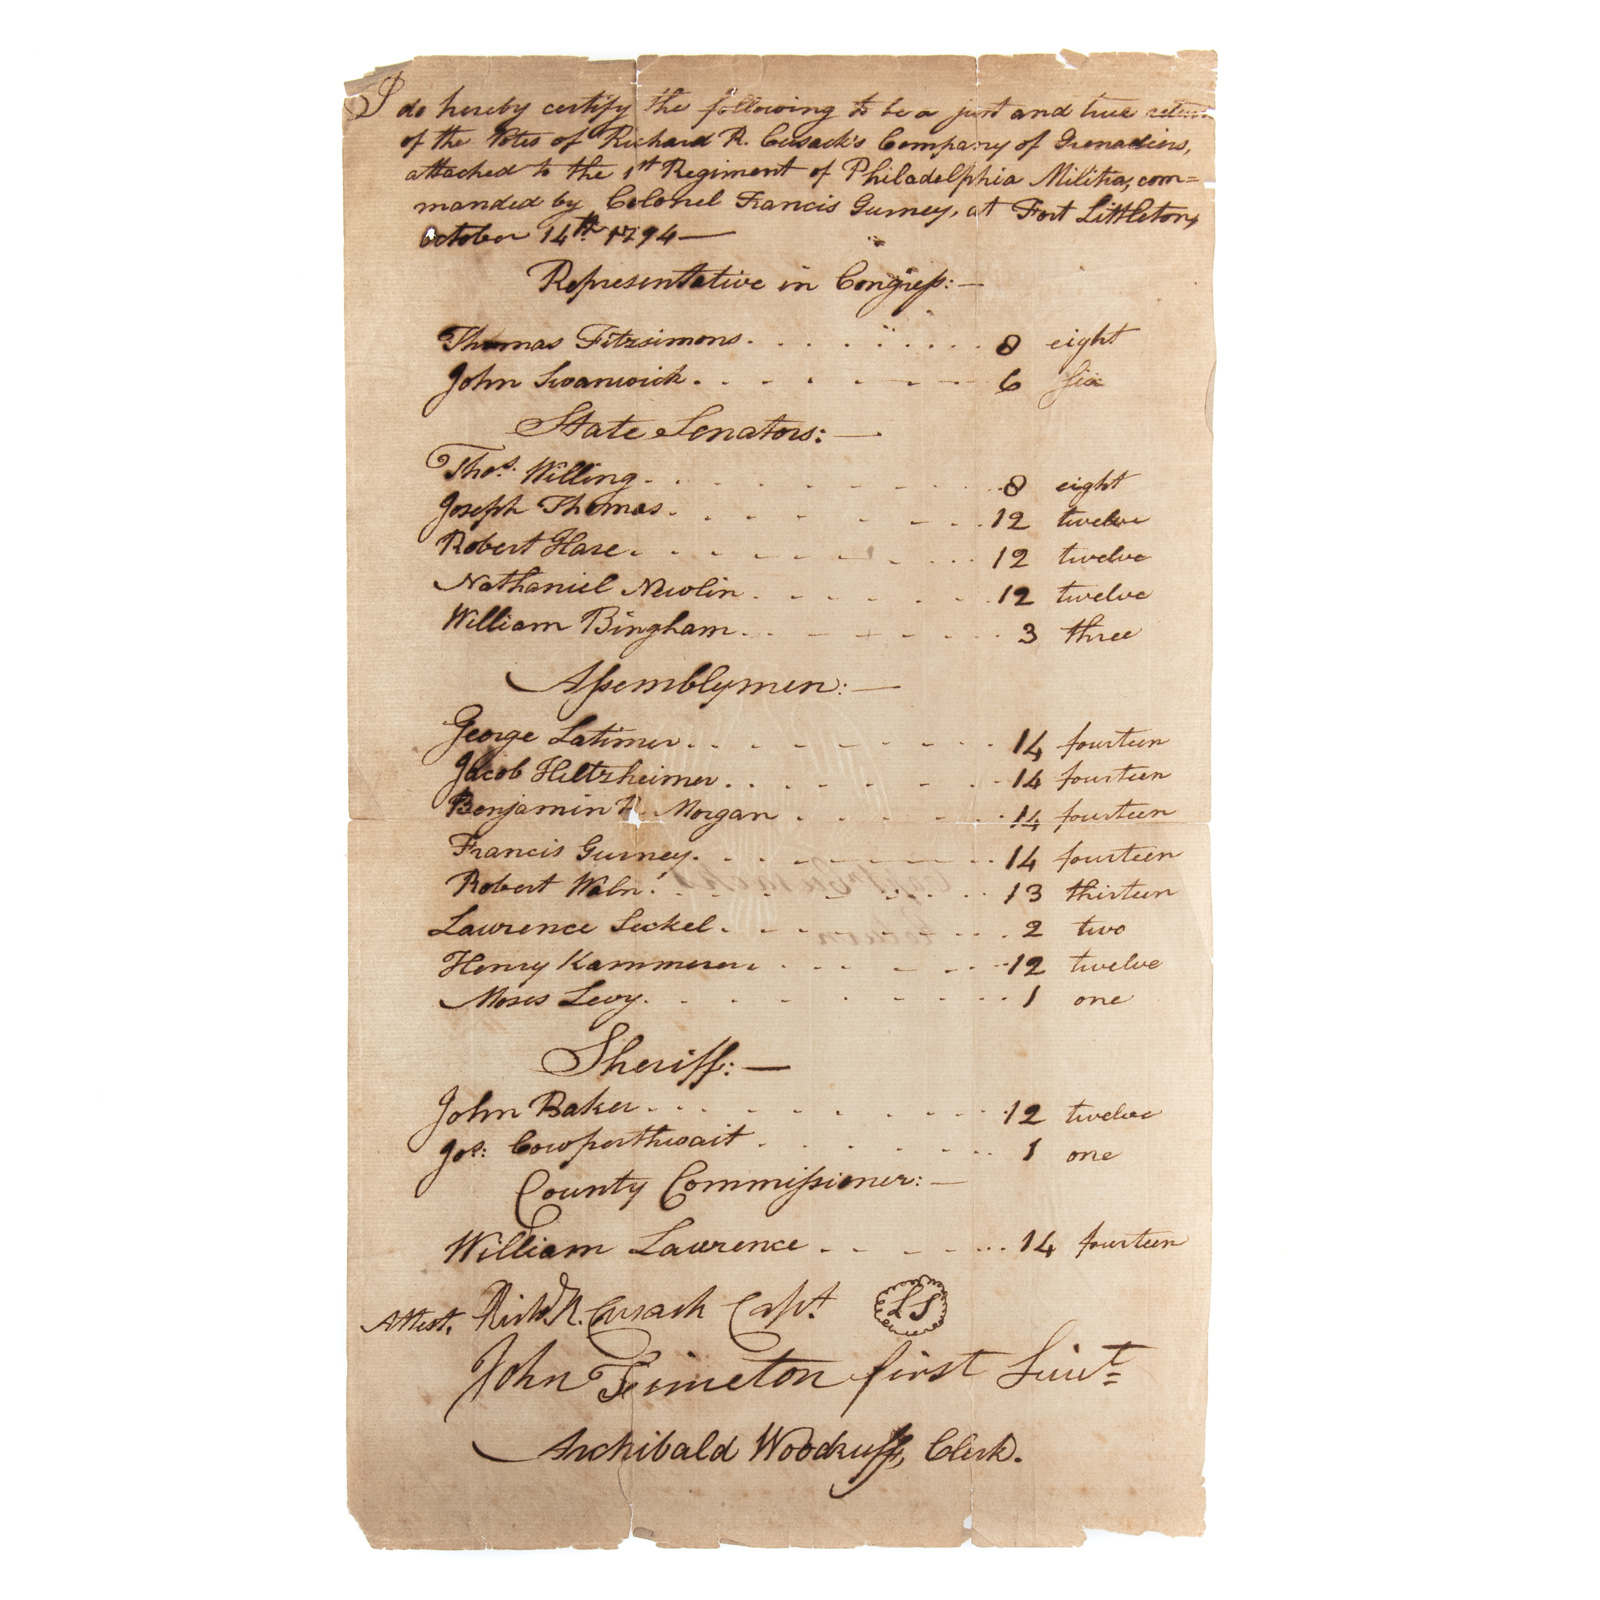 I do hereby certify the following to be a just and true return
of the Votes of Richard R. Cusack's Company of Grenadiers,
attached to the 1st Regiment of Philadelphia Militia, com=
manded by Colonel Francis Gurney, at Fort Littleton,
October 14th 1794—
Representative in Congress:—
Thomas Fitzsimons. . . . . . . . . 8 eight
John Swanwick. - - - - - - - 6 six
State Senators:—
Thos. Willing. - - - - - - - 8 eight
Joseph Thomas. - - - - - - - 12 twelve
Robert Hare. - - - - - - - 12 twelve
Nathaniel Newlin. - - - - - - 12 twelve
William Bingham. - - - - - - 3 three
Assemblymen:—
George Latimer. - - - - - - - 14 fourteen
Jacob Hiltzheimer. - - - - - - 14 fourteen
Benjamin R. Morgan - - - - - 14 fourteen
Francis Gurney. - - - - - - - 14 fourteen
Robert Waln. - - - - - - - 13 thirteen
Lawrence Seckel. - - - - - - 2 two
Henry Kammerer. - - - - - - 12 twelve
Moses Levy. - - - - - - - 1 one
Sheriff:—
John Baker. - - - - - - - 12 twelve
Jos: Cowperthwait - - - - - - 1 one
County Commissioner:—
William Lawrence - - - - - 14 fourteen
Attest. Richd. R. Cusack Capt. LS
John Simeton first Lieut=
Archibald Woodruff, Clerk.